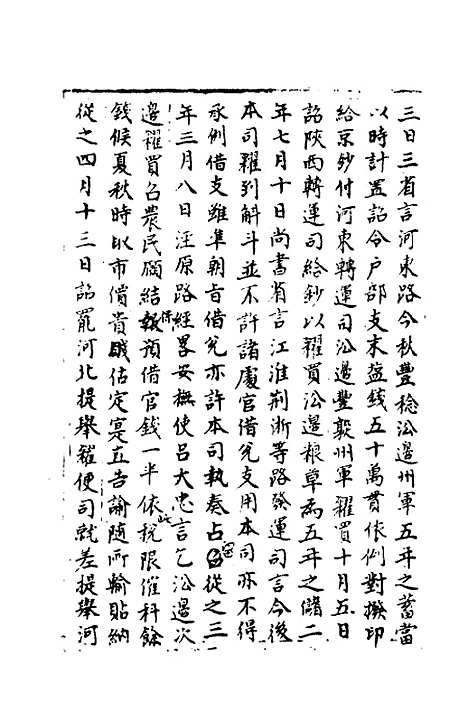 三日三省言河東路今秋豐稔㳂邊州軍五年之蓄當
以時計置詔令户部支末塩錢五十萬貫依例對撥印
給京鈔付河東轉運司㳂邊豐熟州軍糴買十月五日
詔陝西轉運司給鈔以糴買㳂邊粮草為五年之儲二
年七月十日尚書省言江淮荆浙等路發運司言今後
本司糴到斛斗並不許諸處官借兊支用本司亦不得
承例借支雖準朝旨借兊亦許本司執奏占留從之三
年三月八日涇原路經畧安撫使吕大忠言乞㳂邊次
邊糴買召農民願結保預借官錢一半依稅限催科餘
錢候夏秋時以市價貴賤估定寔直告諭随所輸貼納
從之四月十三日詔罷河北提舉糴便司就差提舉河